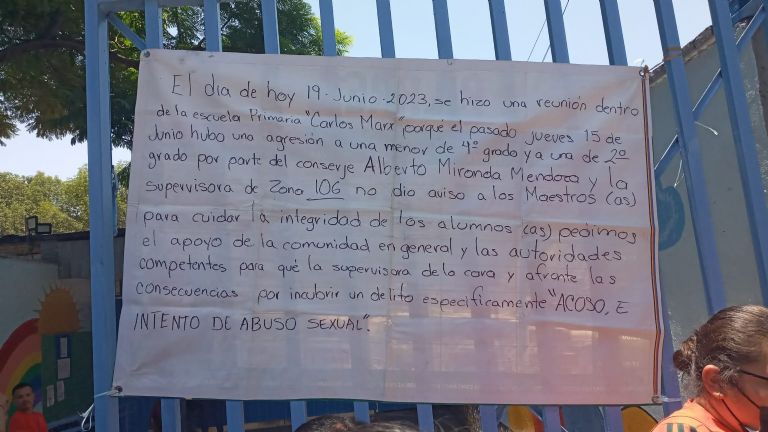 El dia de hoy 19. Junio. 2023, se hizo una reunión dentro
de la escuela Primaria "Carlos Marx", porqué el pasado jueves 15 de
Junio hubo una agresión a una menor de 4° grado y a una de 2°
grado por parte del conserje Alberto Miranda Mendoza y la
supervisora de Zona 106 no dio aviso a los Maestros (as)
para cuidar la integridad de los alumnos (as) pedimos
el apoyo de la comunidad en general y las autoridades
competentes para qué la supervisora de la cara y afronte las
consecuencias por incubrir un delito especificamente "ACOSO, E
INTENTO DE ABUSO SEXUAL".